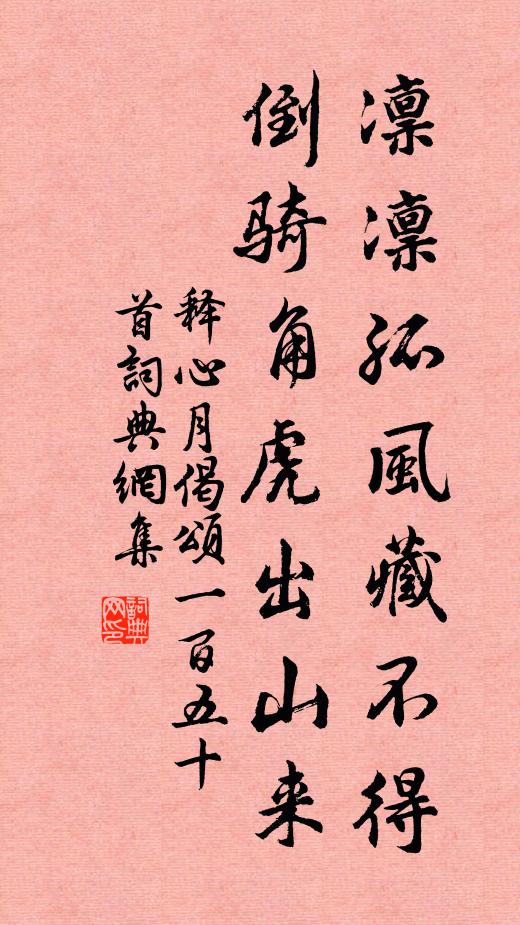 凛凛孤風藏不得
倒騎角虎出山来
释心月偈頌一百五十
首詞典網集
詞典
网印